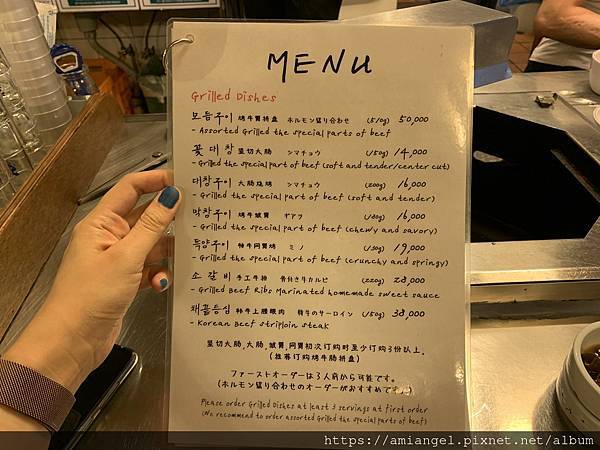 MENU
Grilled Dishes
모듬구이 烤牛胃拼盘 ホルモン盛り合わせ (510g) 50,000
- Assorted Grilled the special parts of beef
꽃대창 竖切大肠 シマチョウ (150g) 14,000
- Grilled the special part of beef (soft and tender/center cut)
대창구이 大肠烧烤 シマチョウ (200g) 16,000
- Grilled the special part of beef (soft and tender)
막창구이 烤牛皱胃 ギアラ (180g) 16,000
- Grilled the special part of beef (chewy and savory)
특양구이 特牛网胃烤 ミノ (130g) 19,000
- Grilled the special part of beef (crunchy and springy)
소갈비 手工牛排 骨付きカルビ (220g) 28,000
- Grilled Beef Ribs Marinated homemade sweet sauce
채끝등심 韩牛上腰眼肉 韓牛のサーロイン (150g) 38,000
- Korean Beef striploin steak
竖切大肠, 大肠, 皱胃, 网胃初次订购时至少订购3份以上.
(推荐订购烤牛肠拼盘)
ファーストオーダーは3人前から可能です.
(ホルモン盛り合わせのオーダーがおすすめです.)
Please order Grilled Dishes at least 3 servings at first order
(We recommend to order assorted Grilled the special parts of beef)
https://amiangel.pixnet.net/album